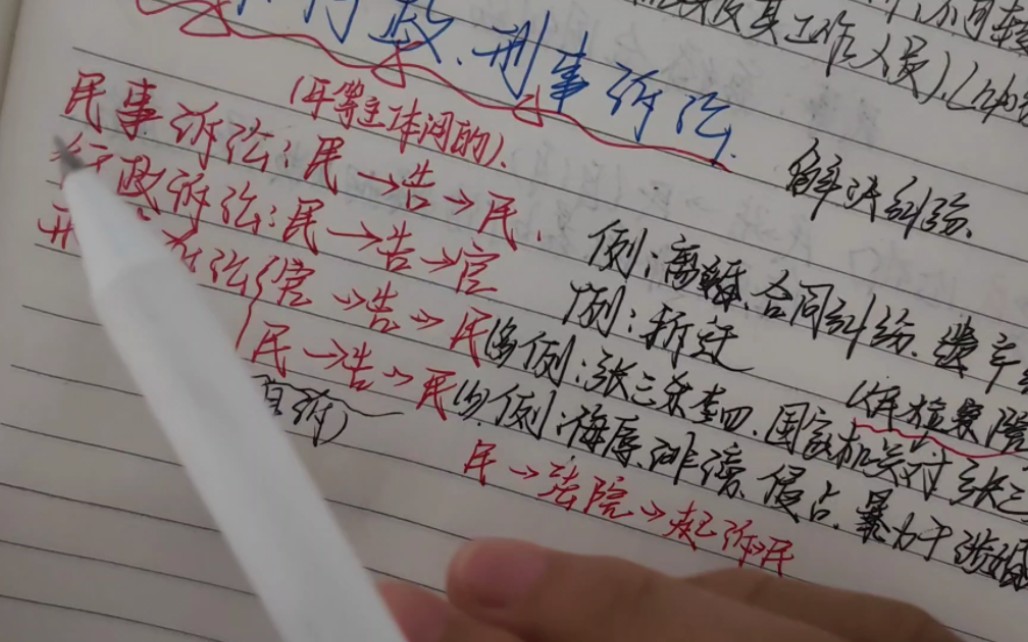 及其工作人员)
行政、刑事诉讼
(平等主体间的).
解决纠纷.
民事诉讼:民→告→民.
例:离婚、合同纠纷、遗产
行政诉讼:民→告→官
例:拆迁
官→告→民(多)例:张三杀李四,国家机关对张三
检察院
民→告→民(少)例:侮辱、诽谤、侵占、暴力干涉婚
自诉)
民→法院→起诉→民